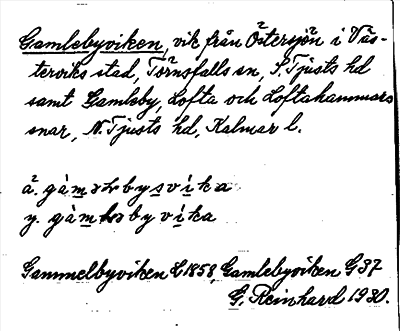 Gamlebyviken, vik från Östersjön i Väs-
terviks stad, Törnsfalls sn, S. Tjusts hd
samt Gamleby, Lofta och Loftahammars
snar, N. Tjusts hd, Kalmar l.
ä. gàməlbysvíka
y. gàmləbyvíka
Gammelbyviken C 1858, Gamlebyviken G 37
G. Reinhard 1930.